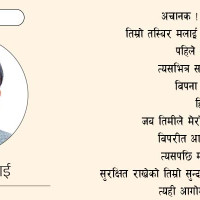 अचानक !
तिम्रो तस्बिर मलाई
पहिले
त्यसभित्र स
विपना
हि
जब तिमीले मेरो
विपरीत आ
त्यसपछि म
सुरक्षित राखेको तिम्रो सुन्द
त्यही आगो
ाई